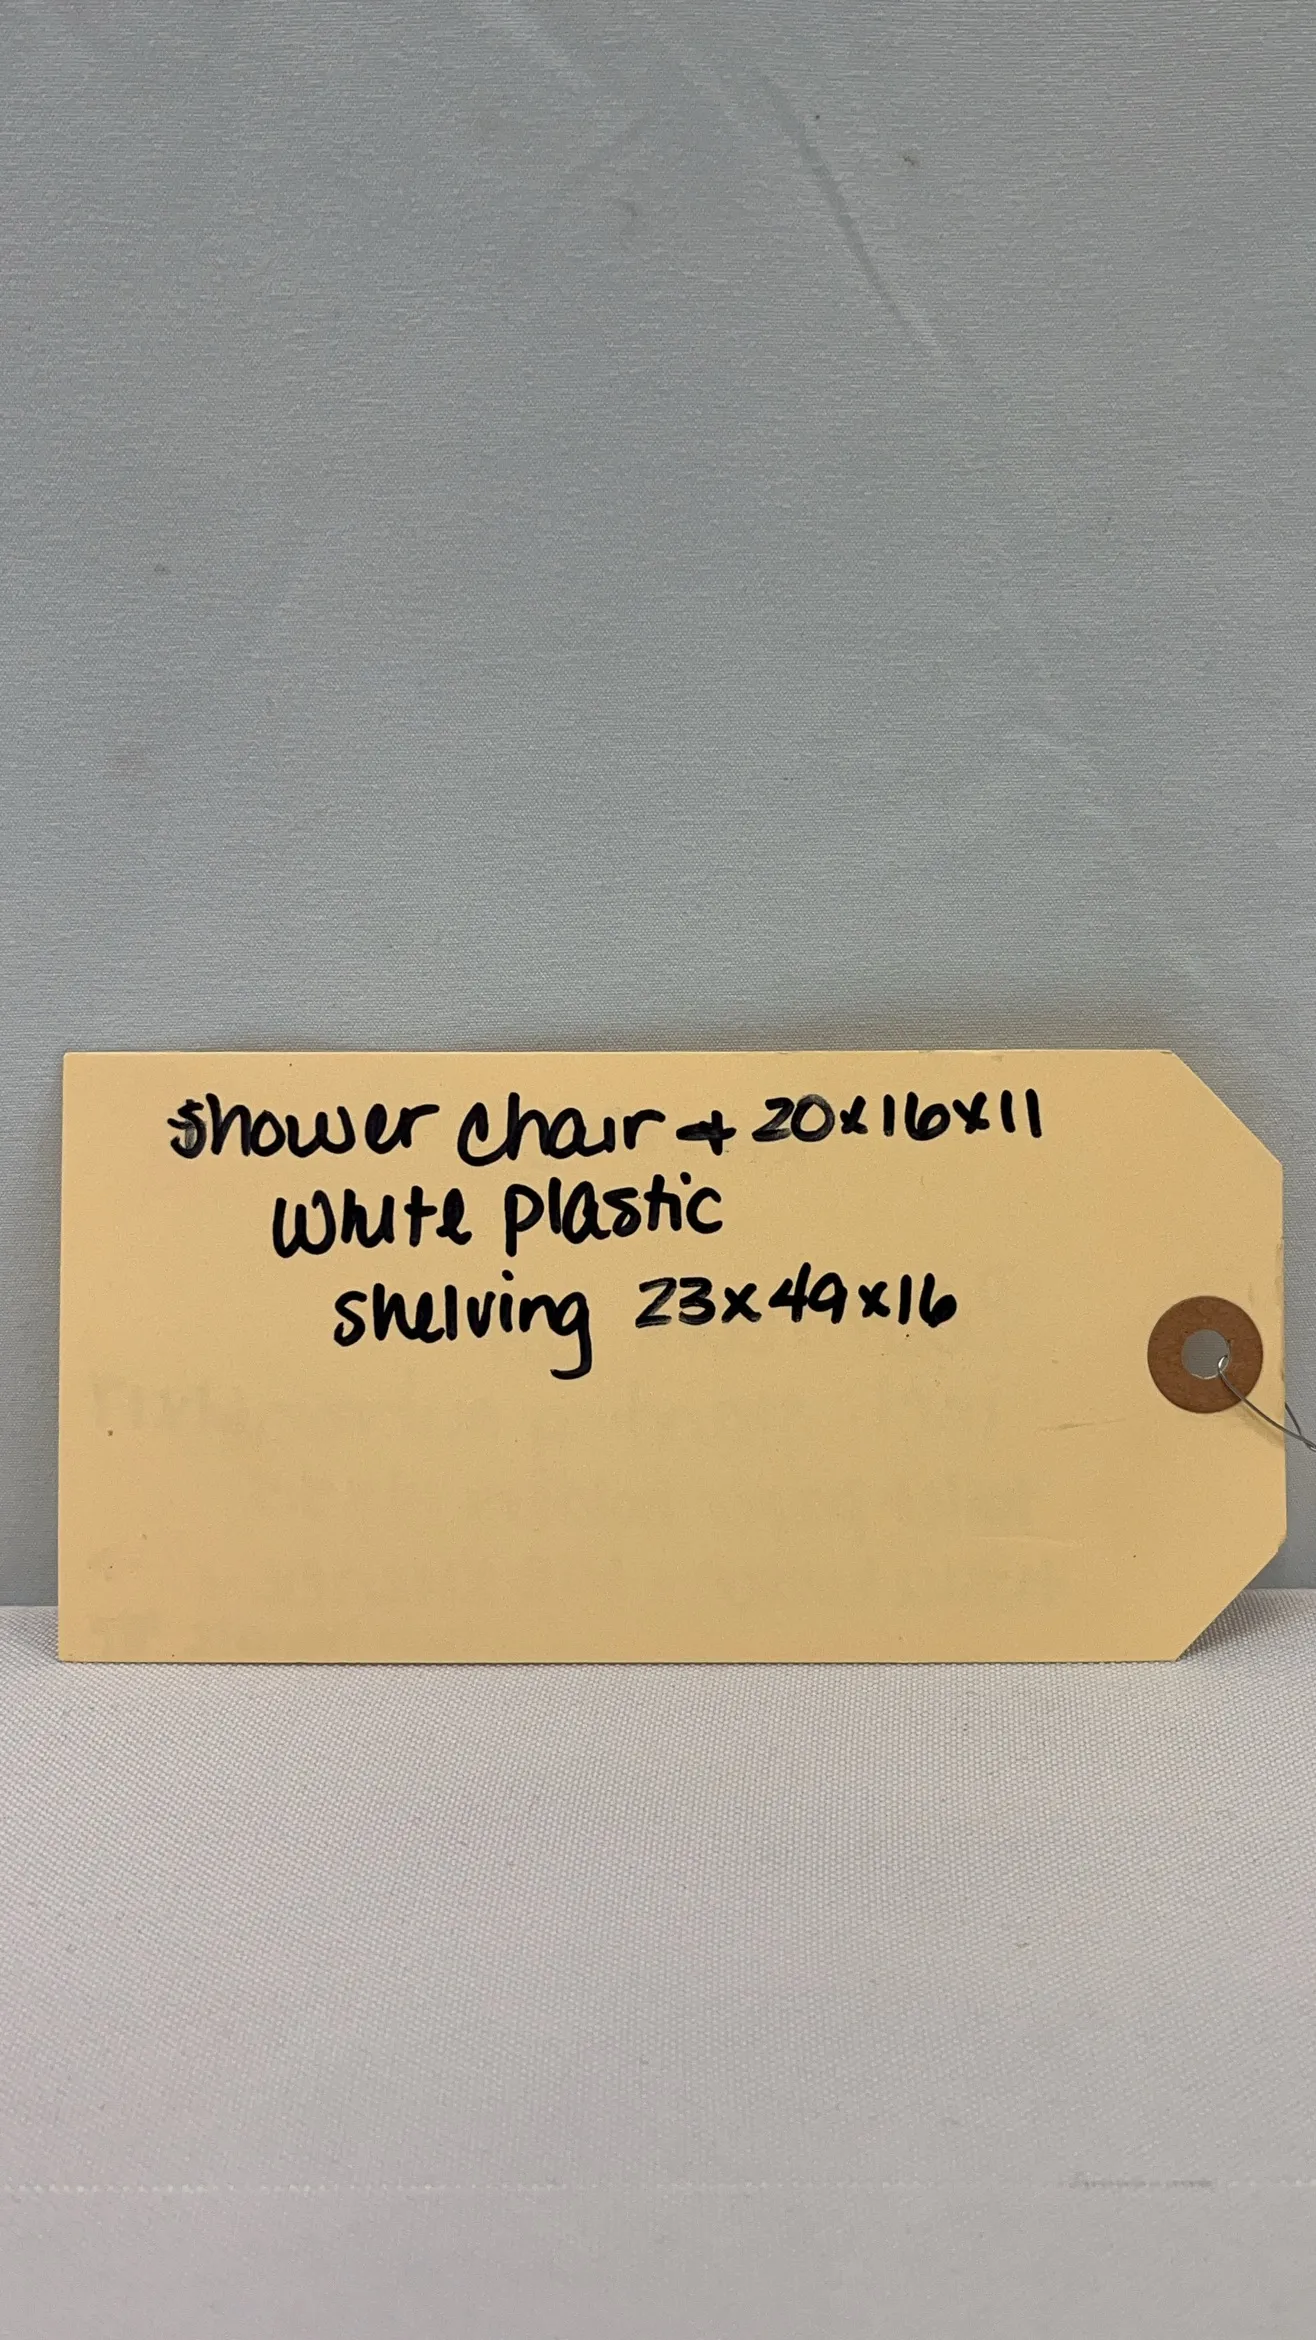 shower chair + 20x16x11
white plastic
shelving 23x49x16